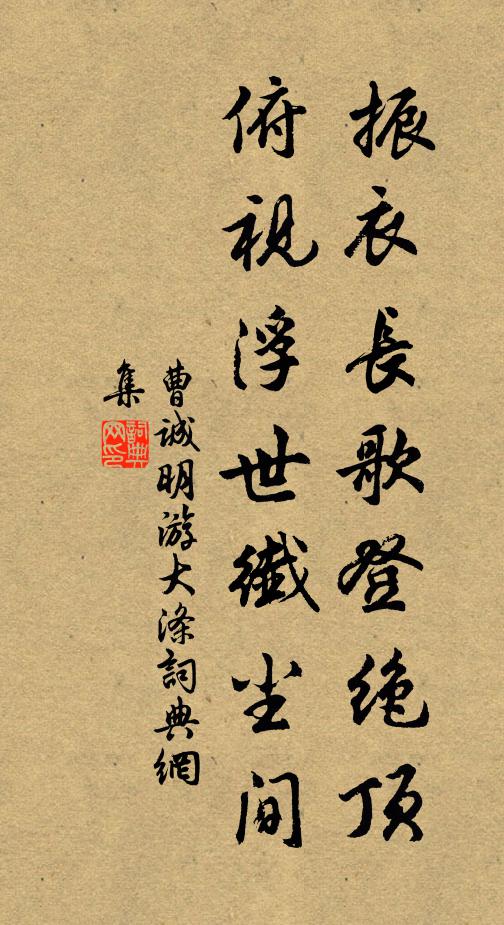 振衣長歌登绝顶
俯視浮世纖尘间
曹诚明游大涤詞典網
集
詞典
网印